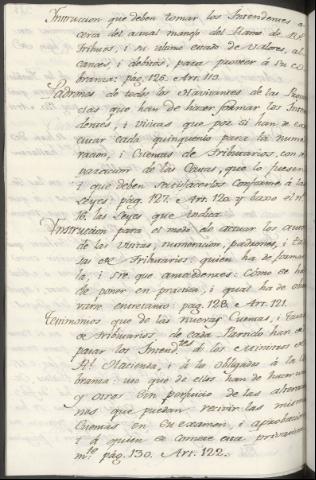 Instruccion que deben tomar los Intendentes a
cerca del actual manejo del Ramo de Rs
Tributos, i su ultimo estado de Valores, al
cances, i debitos, para proveer á su co
branza: pág. 126. Art. 119.
Padrones de todos los Havitantes de las Pro
cias que han de hacer formar los Inten
dentes, i visitas que por si han de exe
cutar cada quinquenio para la nume
racion, i Cuentas de Tributarios, con
paracion de las Castas, que lo
i que deben satisfacerlos conforme á las
Leyes: pág. 127. Art. 120. y baxo el nº
16. las Leyes que
Instruccion para el modo de actuar los autos
de las Visitas, numeracion, padrones, i
tas de Tributarios: quien ha de forma
la, i sre que antecedentes: Como se ha
de poner en practica, i qual ha de obser
varse entretanto: pag. 128. Art. 121.
Testimonios que de las nuevas Cuentas, i Tasas
de Tributarios, de cada Partido han de
pasar los Intendtes á los Ministros de
Rl Hacienda, i á los obligados á la co
branza: uso que de ellos han de hacer unos
y otros sin perjuicio de las alteracio
nes que puedan recivir las mismas
Cuentas en su examen, i aprobacion
i á quien se comete esta privativa
mte. pág. 130. Art. 122.